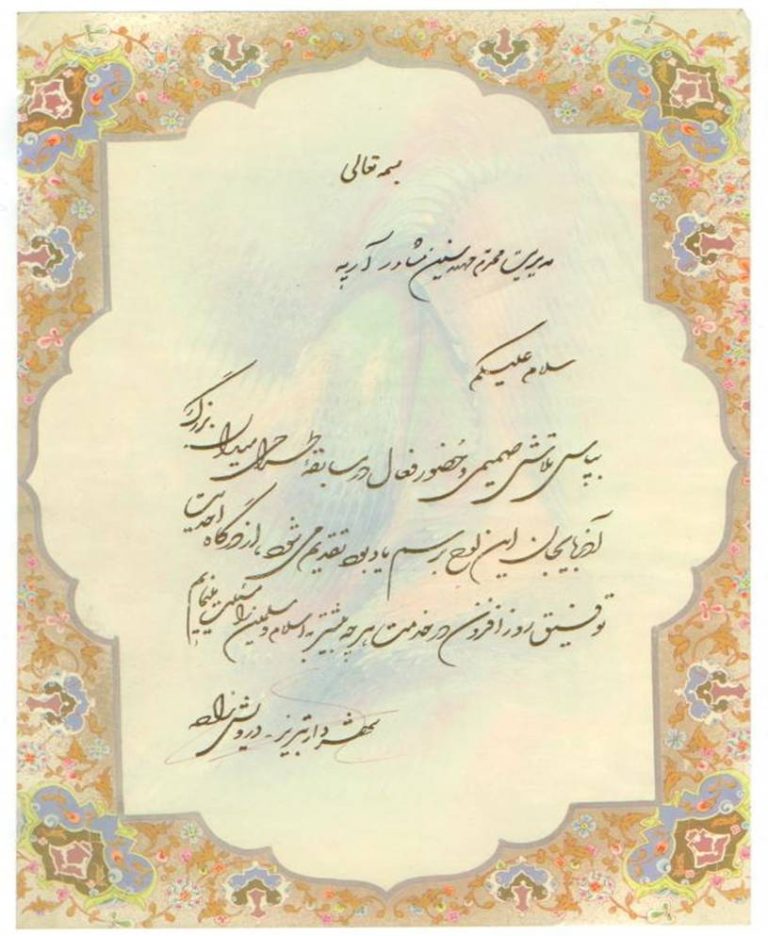 بسمه تعالی
مدیریت محترم مهندسین مشاور آرپه
سلام علیکم
بپاس تلاش صمیمی و حضور فعال در مسابقه طراحی میدان بزرگ
آذربایجان این لوح برسم یادبود تقدیم می شود، از درگاه احدیت
توفیق روز افزون در خدمت هر چه بیشتر به اسلام و مسلمین را مسئلت مینمایم
شهردار تبریز - درویش زاده